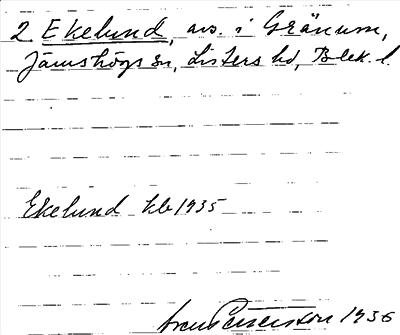 2 Ekelund, avs. i Gränum,
Jämshögs sn, Listers hd, Blek. l.
Ekelund kb 1935
1936